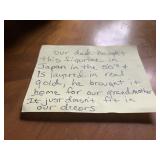 Our dad bought
this figurine in
Japan in the 50's &
Is layered in real
gold, he brought it
home for our grandmother
It just doesn't fit in
our decors